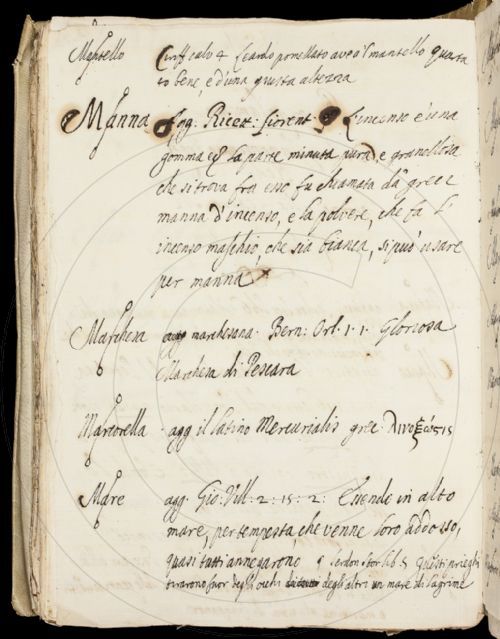 Mantello Ciriff. calv. 4 Leardo pomellato avea l'mantello quarta
to bene, e d'una giusta altezza
Manna Agg. Ricet: fiorent: L'incenso è una
gomma la parte minuta pura, e granellosa
che si trova fra esso fu chiamata da greci
manna d'incenso, e la polvere, che fa l'
incenso maschio, che sia bianca, si può usare
per manna
Marchesa agg marchesana. Bern: Orl. 1. 1. Gloriosa
Marchesa di Pescara
Marcorella agg il latino Mercurialis grec. λινοζώστις
Mare agg. Gio: Vill: 2: 15: 2: Essendo in alto
mare, per tempesta, che venne loro addosso,
quasi tutti annegarono Serdon Stor lib. 5 Questi prieghi
tirarono fuor degli occhi degli altri un mare di lagrime